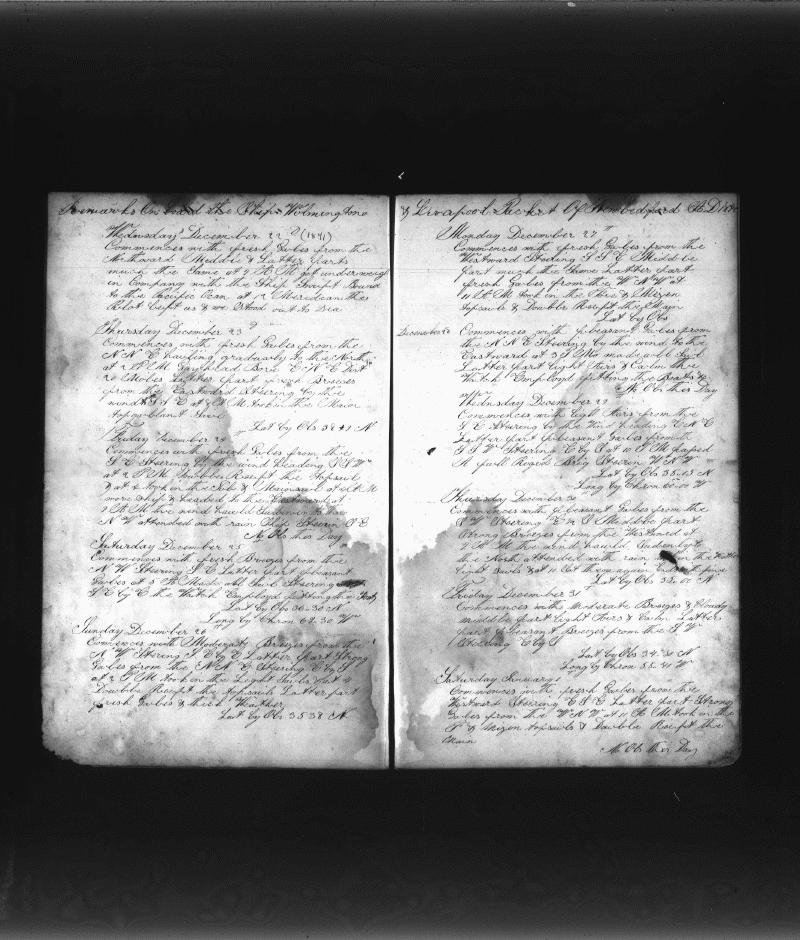 Remarks On board the Ship Wilmington
Wednsday December 22 d (1841)
Commences with fresh Gales from the
Northward Middle & Latter parts
much the Same at 9 A M got underweigh
in Company with the Ship bound
to the pacific at 12 Meredean the
Pilot left us & we Stood out to Sea
Thursday December 23 d
Commences with fresh Gales from the
N N E hauling gradualy to the North
at 2 P M Gayhead Bore E N E Dist
20 Miles Latter part fresh Breeses
from the Eastward Steering by the
wind S S E at 9 P M took in the Main
topgallant Sail
Lat by Obs N
Friday December 24
Commences with fresh Gales from the
S E Steering by the wind heading S S W
at 2 P M Doubble Reeft the topsails
& at 4 took in the Jib & Mainsail at 12 M
wore Ship & headed to the Eastward at
the wind hauld
N W attended with rain Ship Steerin S E
No Obs this Day
Saturday December 25
Commences with fresh Breezes from the
N W Steering S E Latter part pleasant
Gales at 5 A M Made all Sail Steering
S E by E the Watch Employd fitting the Boats
Lat by Obs 36-30 N
Long by Chron 62.30 W
Sunday December 26
Comences with Moderate Breezes from the
N W Steering S E by E Latter part Strong
Gales from the N N E Steering E by S
at 2 P M took in the Light Sails at 4
Doubble Reeft the topsails Latter part
fresh Gales & thick Weather
Lat by Obs 35 38 N
& Liverpool Packet of Newbedford A D 18
Monday December 27 th
Commences with fresh Gales from the
Westward Steering S S E Middle
part much the Same Latter part
fresh Gales from the W N W at
11 A M took in the Fore & Mizen
topsails & Doubble Reeft the Main
Lat by Obs
December 28 Commences with pleasant Gales from
the N N E Steering by the wind to the
Eastward at 3 P M made all Sail
Latter part Light Airs & Calm the
Watch Employd fitting the Boats &c
No Obs this Day
Wednsday December 29
Commences with Light Airs from the
S E Steering by the Wind heading E N E
Latter part pleasant Gales from the
S S W Steering E by S at 10 P M passed
A full Riged Brig Steerin W N W
Lat by Obs 35.13 N
Long by Chron 60.00 W
Thursday December 30
Commences with pleasant Gales from the
S W Steering E S Middle part
Strong Breezes from the Westward at
A M the wind hauld Sudenly to
the North attended with rain in the
Light Sails & at 11 Set them again
Lat by Obs N
Friday December 31 st
Commences with Moderate Breezes & Cloudy
middle part Light Airs & Calm Latter
part pleasant Breezes from the S W
Steering E by S
Lat by Obs 34.30 N
Long by Chron W
Saturday January 1
Commences with fresh Gales from the
Westward Steering E S E Latter part Strong
Gales from the W N W at 11 A M took in the
F & Mizen topsails & Doubble Reeft the
Main
No Obs this Day